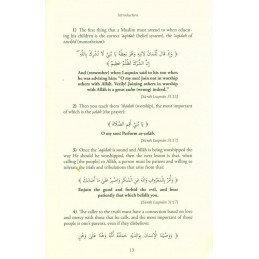 Introduction
1) The first thing that a Muslim must attend to when educat-
ing his children is the correct ʿaqīdah (belief system), the ʿaqīdah of
tawhīd (monotheism):
﴿ وَإِذْ قَالَ لُقْمَانُ لِابْنِهِ وَهُوَ يَعِظُهُ يَا بُنَيَّ لَا تُشْرِكْ بِاللَّهِ
إِنَّ الشِّرْكَ لَظُلْمٌ عَظِيمٌ ﴾
And (remember) when Luqmān said to his son when
he was advising him: "O my son! Join not in worship
others with Allāh. Verily! Joining others in worship
with Allāh is a great zulm (wrong) indeed."
[Sūrah Luqmān 31:13]
2) Then you teach them ʿibādah (worship), the most important
of which is the salāh (prayer):
﴿ يَا بُنَيَّ أَقِمِ الصَّلَاةَ ﴾
O my son! Perform as-salāh.
[Sūrah Luqmān 31:17]
3) Once the ʿaqīdah is sound and Allāh is being worshipped the
way He should be worshipped, then the next lesson is that, when
calling (the people) to Allāh, a person must be patient and willing to
tolerate the trials and tribulations that arise from this:
﴿ وَأْمُرْ بِالْمَعْرُوفِ وَانْهَ عَنِ الْمُنْكَرِ وَاصْبِرْ عَلَى مَا أَصَابَكَ ﴾
Enjoin the good and forbid the evil, and bear
patiently that which befalls you.
[Sūrah Luqmān 31:17]
4) The caller to the truth must have a connection based on love
and mercy with those that he calls, and the most important of those
people is one's parents, even if they are disbelievers:
﴿ وَوَصَّيْنَا الْإِنْسَانَ بِوَالِدَيْهِ حَمَلَتْهُ أُمُّهُ وَهْنًا عَلَى وَهْنٍ
13